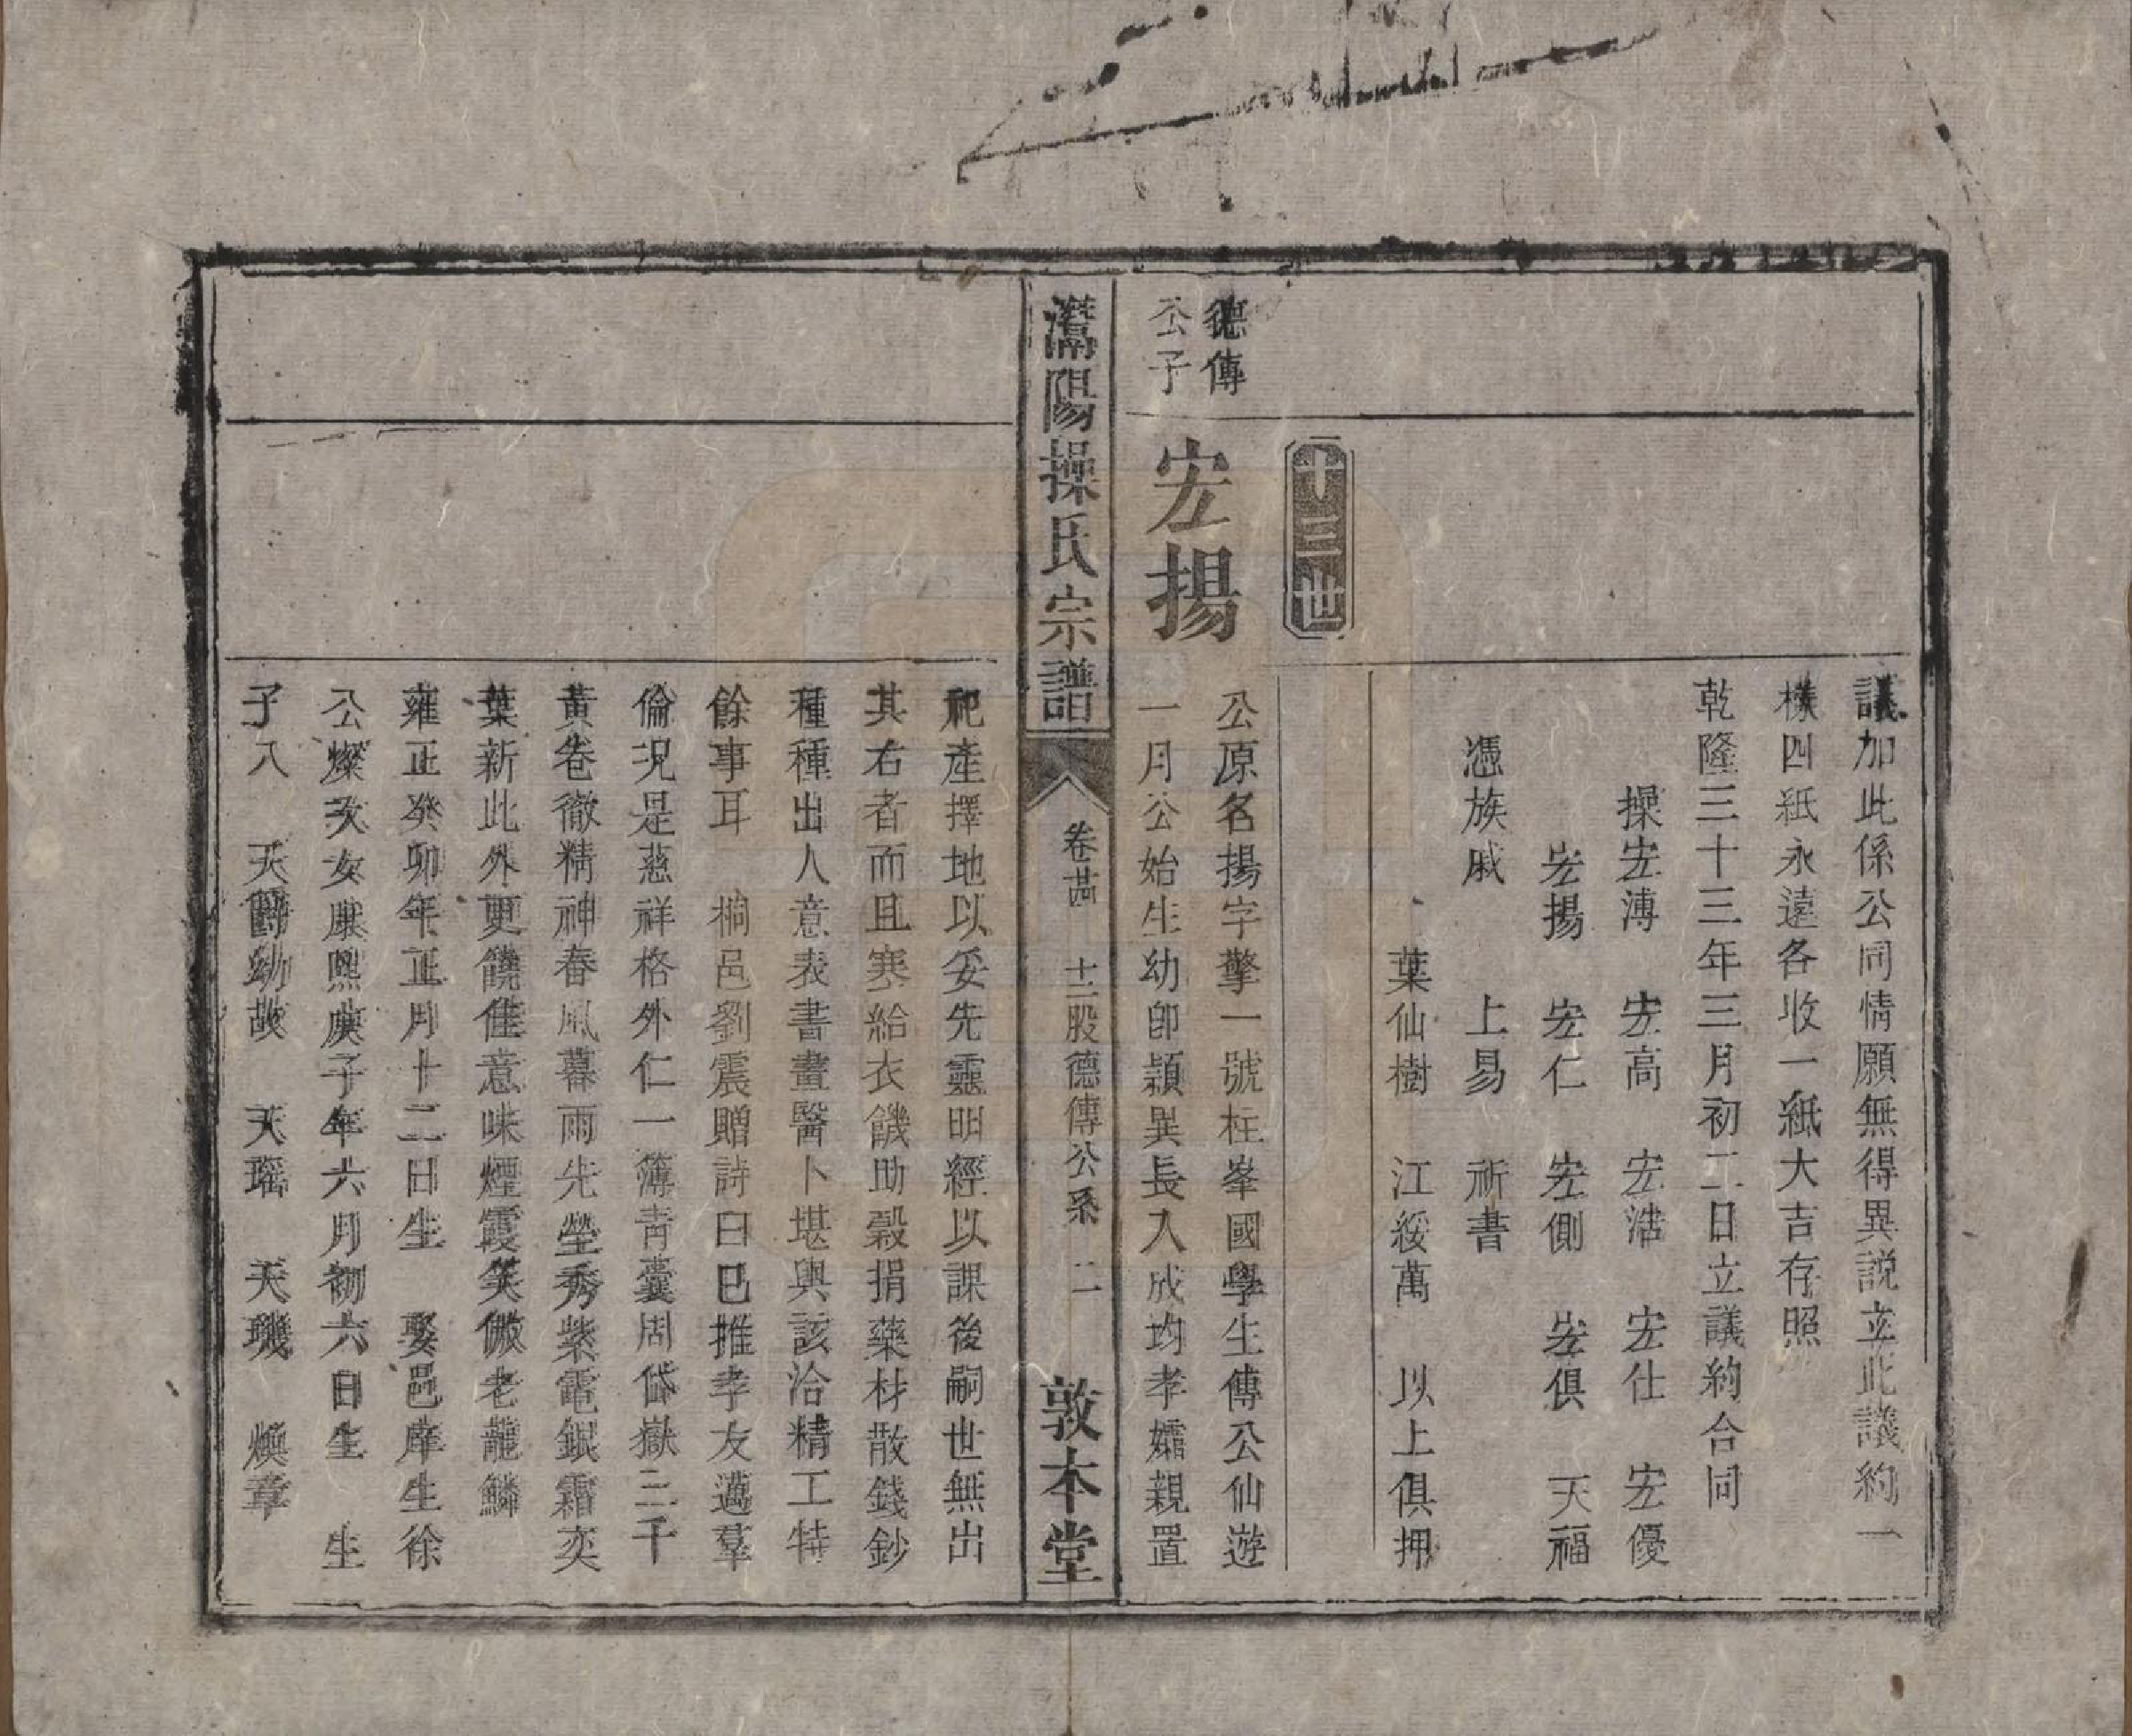 議加此係公同情願無得異説立此議約一
樣四紙永遠各收一紙大吉存照
乾隆三十三年三月初二日立議約合同
操宏溥 宏高 宏浩 宏仕 宏優
宏揚 宏仁 宏側 宏俱 天福
憑族戚 上易 祈書
葉仙樹 江綏萬 以上俱押
十三世
德傳
公子
宏揚
公原名揚字擎一號柱峯國學生傳公仙遊
一月公始生幼卽頴異長入成均孝孀親置
灊陽操氏宗譜
卷茁 十二股德傳公系 二
敦本堂
祀產擇地以妥先靈明經以課後嗣世無出
其右者而且寒給衣饑助穀捐藥材散錢鈔
種種出人意表書畫醫卜堪輿該洽精工特
餘事耳 桐邑劉震贈詩曰已推孝友邁羣
倫况是慈祥格外仁一簿青囊周岱嶽三千
黃卷徹精神春風暮雨先塋秀紫電銀霜奕
葉新此外更饒佳意味煙霞笑傲老龍鱗
雍正癸卯年正月十二日生 娶邑庠生徐
公燦次女康熙庚子年六月初六日生 生
子八 天爵幼故 天瑶 天璣 煥章